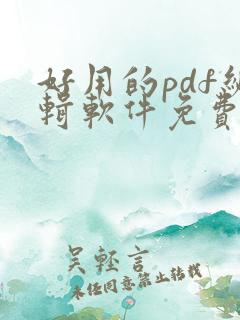 好用的pdf編
輯軟件免費
吴輕言
未任同意禁止转载